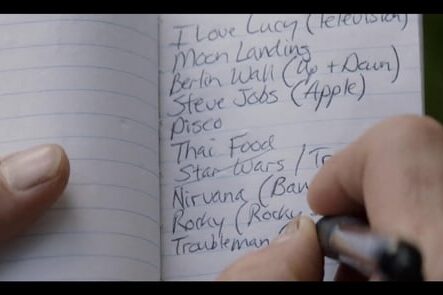 I Love Lucy (Television)
Moon Landing
Berlin Wall (Up + Down)
Steve Jobs (Apple)
Disco
Thai Food
Star Wars /
Nirvana (Ban
Rocky (Rocky
Troubleman